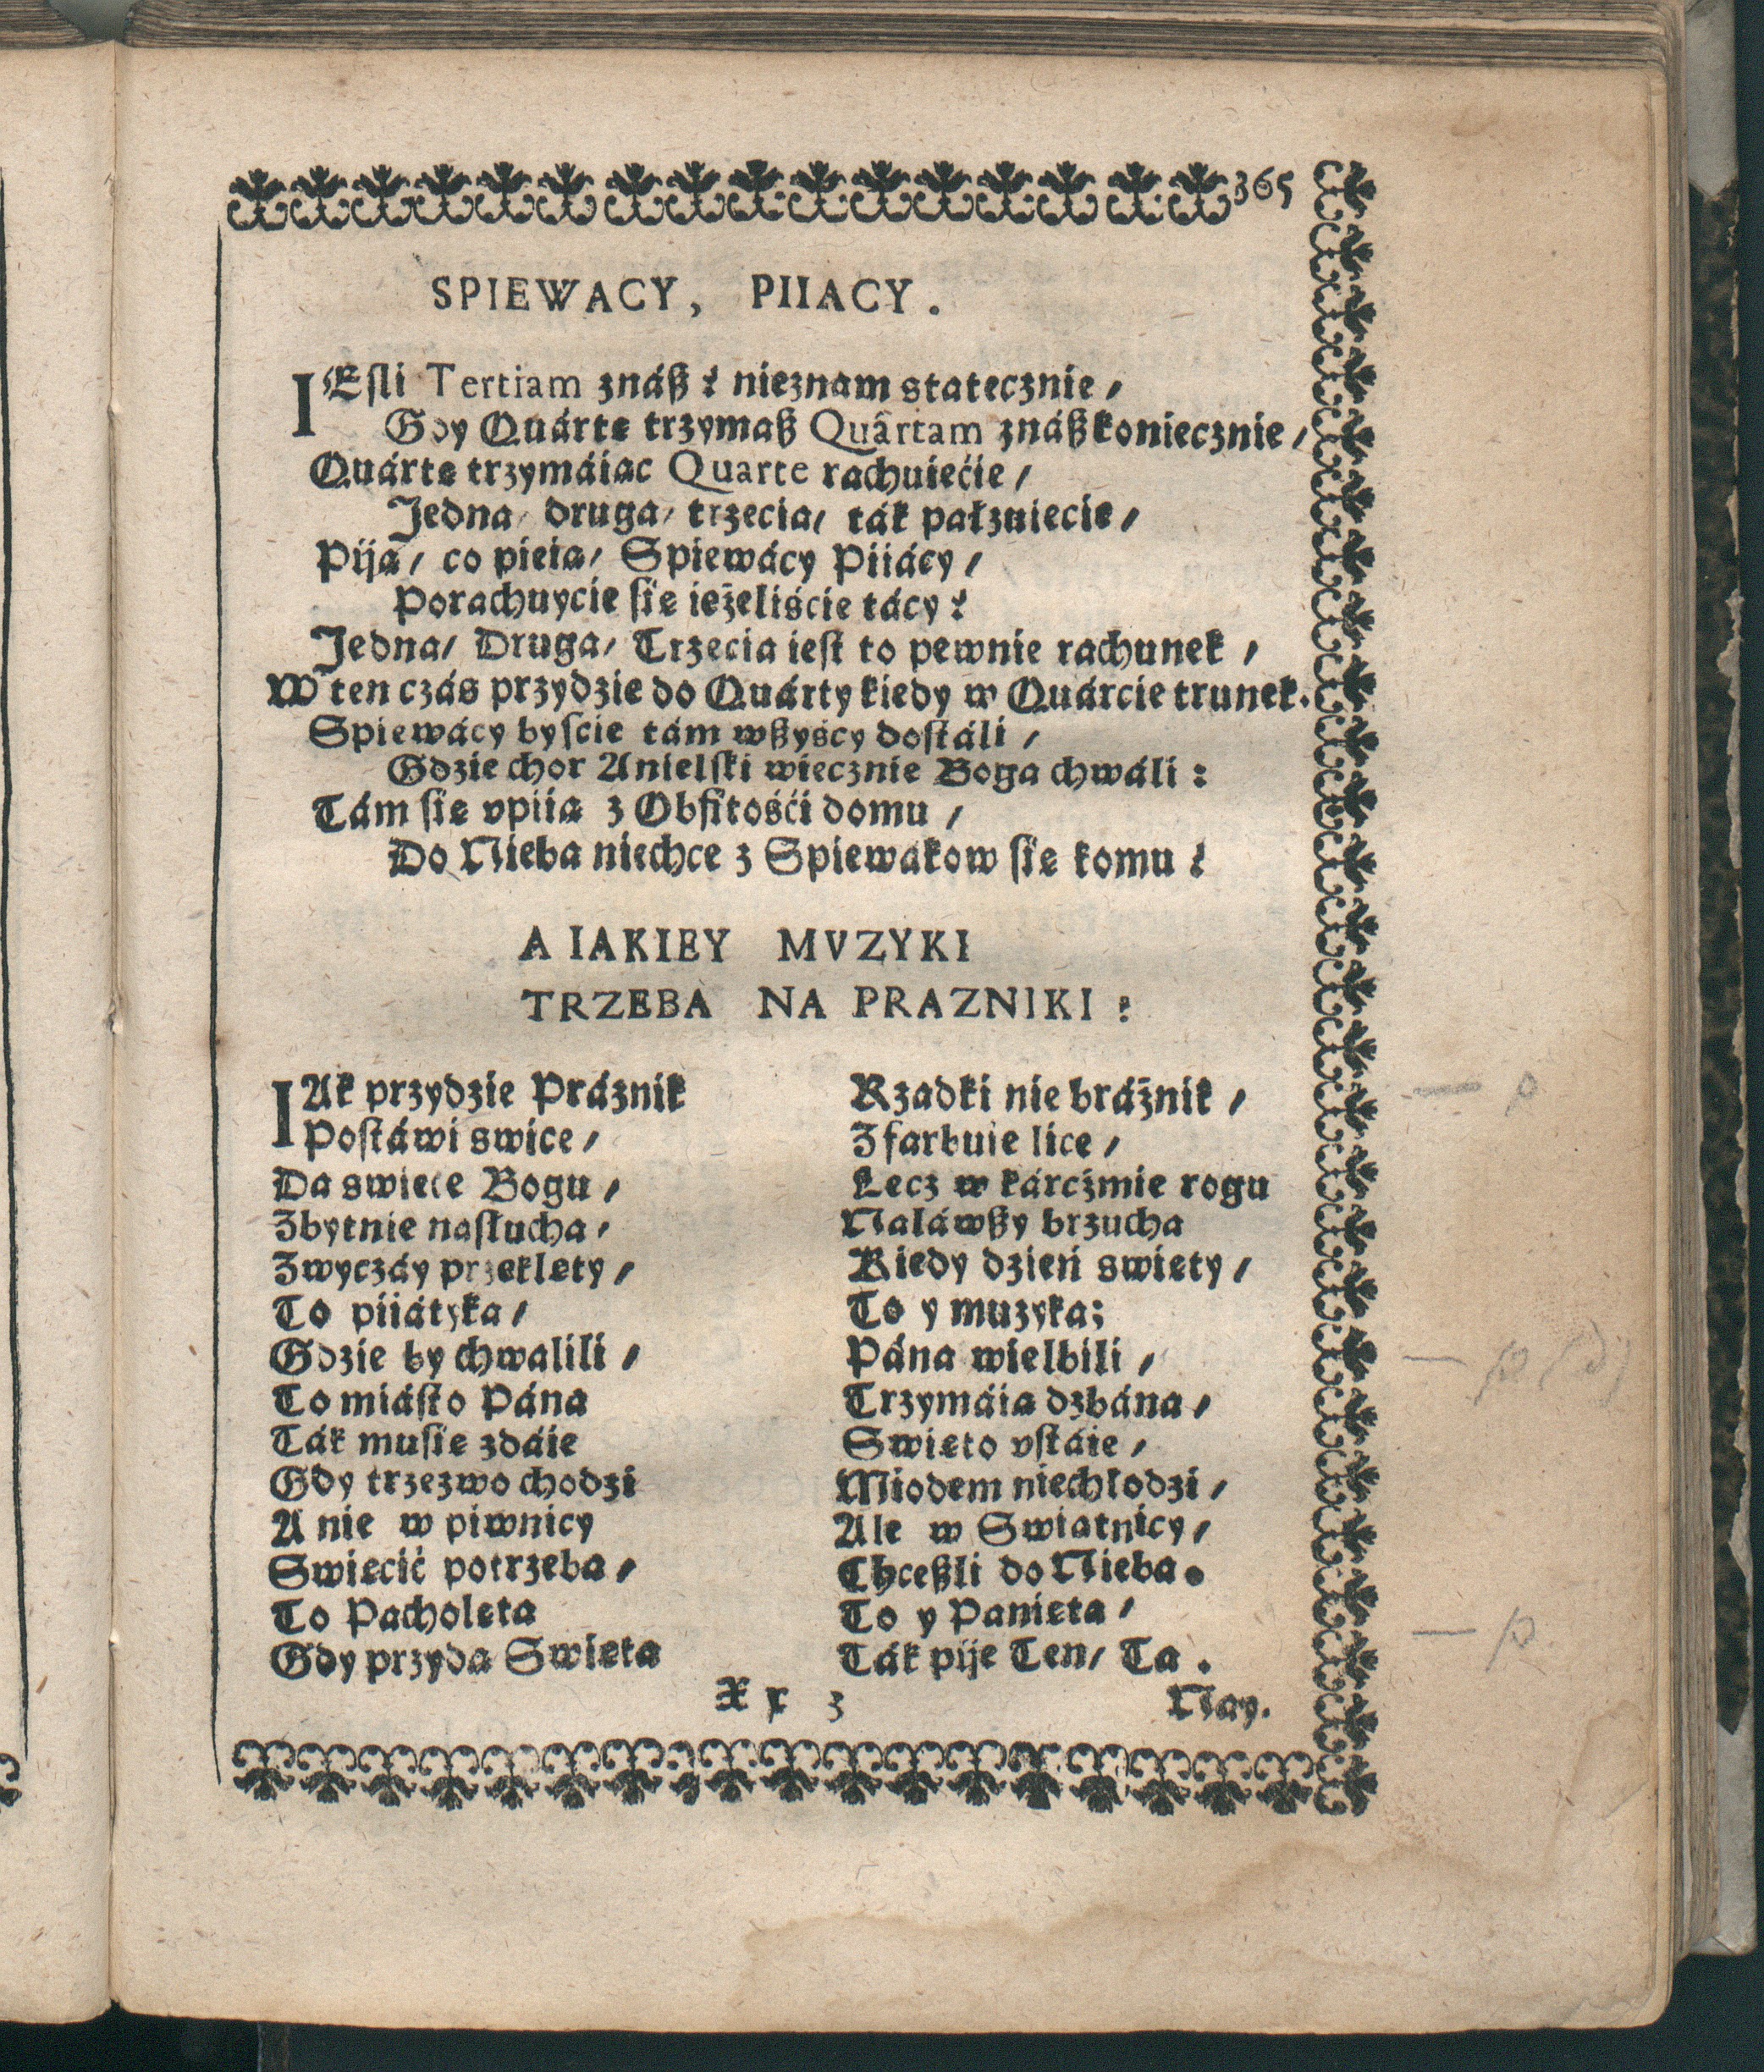 365
SPIEWACY, PIIACY.
IEſli Tertiam znáß? nieznam statecznie /
Gdy Quártę trzymaß Quârtam znáß koniecznie /
Quártę trzymáiąc Quarte rachuiećie /
Jedna / druga / trzecia / ták páłzuiecie /
Piją / co pieią / Spiewácy Piiácy /
Porachuycie ſię ieżeliście tácy?
Jedna / Druga / Trzecia ieſt to pewnie rachunek /
W ten czás przydzie do Quárty kiedy w Quárcie trunek.
Spiewácy byſcie tám wßyścy doſtáli /
Gdzie chor Anielſki wiecznie Boga chwáli:
Tám ſię vpiią z Obfitośći domu /
Do Nieba niechce z Spiewakow ſię komu?
A IAKIEY MVZYKI
TRZEBA NA PRAZNIKI?
IAk przydzie Práznik
Rzadki nie bráżnik /
Poſtáwi swice /
Zfarbuie lice /
Da swiece Bogu /
Lecz w kárcżmie rogu
Zbytnie nasłucha /
Naláwßy brzucha
Zwyczáy przeklęty /
Kiedy dzień swięty /
To piiátyka /
To y muzyka;
Gdzie by chwalili /
Pána wielbili /
To miáſto Pána
Trzymáią dzbána /
Ták muſię zdáie
Swięto vſtáie /
Gdy trzezwo chodzi
Miodem niechłodzi /
A nie w piwnicy
Ale w Swiątnicy /
Swięcić potrzeba /
Chceßli do Nieba.
To Pacholęta
To y Panięta /
Gdy przyda Swięta
Ták pije Ten / Ta.
Xx 3
Nay.